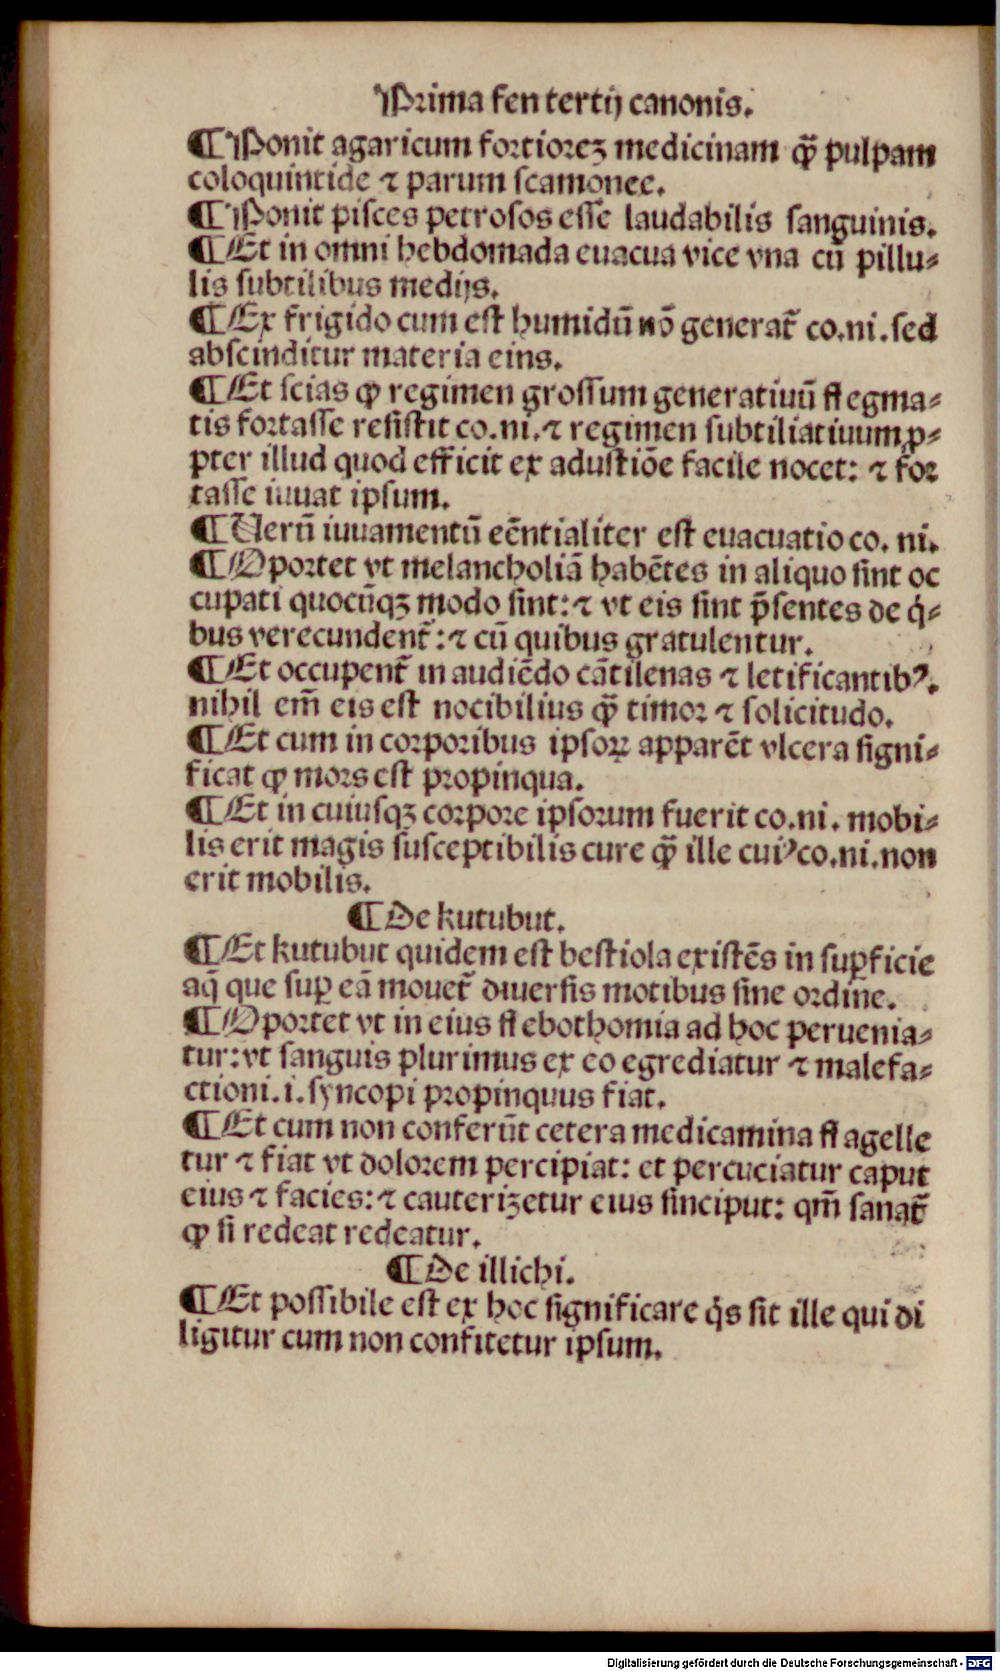 Prima fen tertij canonis.
¶ Ponit agaricum fortiorez medicinam qꝫ̃ pulpam
coloquintide ⁊ parum scamonee.
¶ Ponit pisces petrosos esse laudabilis sanguinis.
¶ Et in omni hebdomada euacua vice vna cū pillu⸗
lis subtilibus medijs.
¶ Ex frigido cum est humidū nō generat̃ co.ni.sed
abscinditur materia eius.
¶ Et scias ꝙ regimen grossum generatiuū flegma⸗
tis fortasse resistit co.ni.⁊ regimen subtiliatiuum ꝓ⸗
pter illud quod efficit ex adustiōe facile nocet: ⁊ for
tasse iuuat ipsum.
¶ Uerū iuuamentū eēntialiter est euacuatio co. ni.
¶ Oportet vt melancholiā habētes in aliquo sint oc
cupati quocūqꝫ modo sint:⁊ vt eis sint p̄sentes de q̇⸗
bus verecundent̃:⁊ cū quibus gratulentur.
¶ Et occupent̃ in audiēdo cātilenas ⁊ letificantibꝰ.
nihil em̄ eis est nocibilius ꝙ̃ timor ⁊ solicitudo.
¶ Et cum in corporibus ipsoꝝ apparēt vlcera signi⸗
ficat ꝙ mors est propinqua.
¶ Et in cuiusqꝫ corpore ipsorum fuerit co.ni. mobi⸗
lis erit magis susceptibilis cure ꝙ̃ ille cuiꝰ co.ni.non
erit mobilis.
¶ De kutubut.
¶ Et kutubut quidem est bestiola existēs in suꝑficie
aq̄ que suꝑ eā mouet̃ diuersis motibus sine ordine.
¶ Oportet vt in eius flebothomia ad hoc perueniа⸗
tur:vt sanguis plurimus ex eo egrediatur ⁊ malefa⸗
ctioni.i.syncopi propinquus fiat.
¶ Et cum non conferūt cetera medicamina flagelle
tur ⁊ fiat vt dolorem percipiat: et percuciatur caput
eius ⁊ facies:⁊ cauterizetur eius sinciput: qm̄ sanat̃
ꝙ si redeat redeatur.
¶ De illichi.
¶ Et possibile est ex hoc significare q̇s sit ille qui di
ligitur cum non confitetur ipsum.
Digitalisierung gefördert durch die Deutsche Forschungsgemeinschaft - DFG